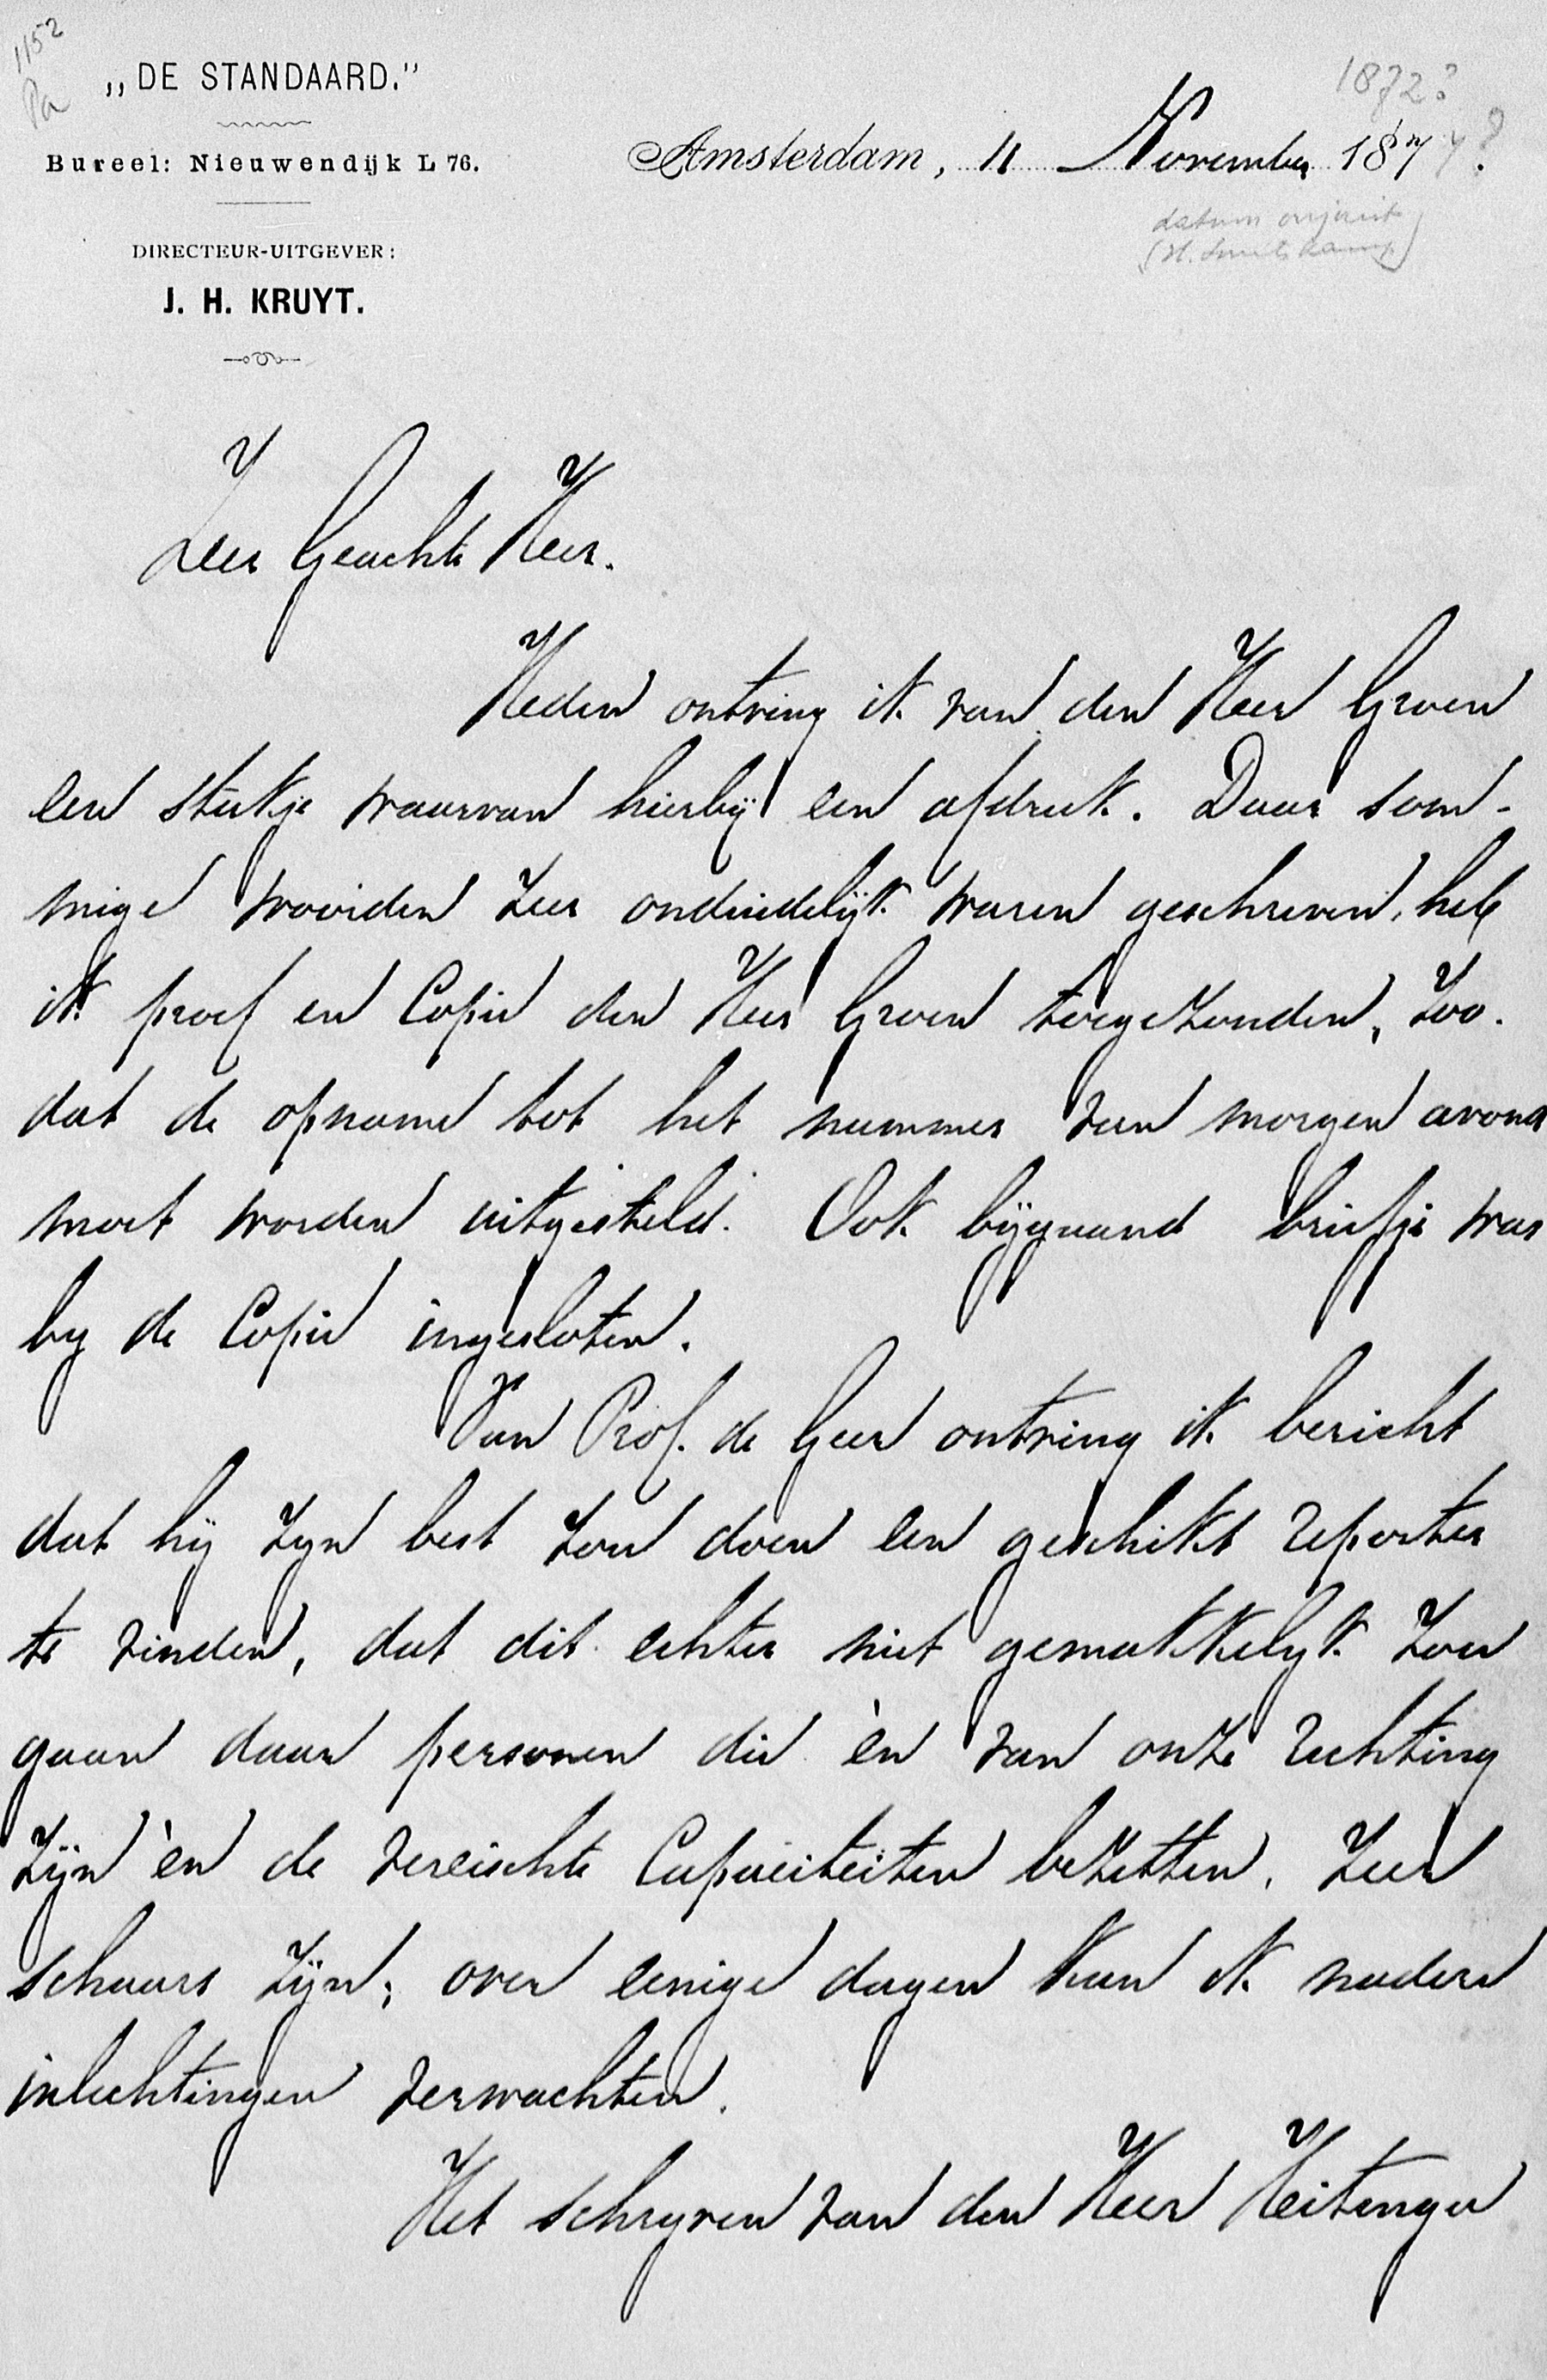 1152
Pa
„DE STANDAARD."
Bureel: Nieuwendijk L 76.
DIRECTEUR-UITGEVER:
J. H. KRUYT.
1872?
Amsterdam, 11 November 187
datum onjuist
(H. Smitskamp)
Zeer Geachte Heer.
Heden ontving ik van den Heer Groen
een stukje waarvan hierbij een afdruk. Daar som-
mige woorden zeer onduidelijk waren geschreven, heb
ik proef en Copie den Heer Groen toegezonden, zoo-
dat de opname tot het nummer van morgen avond
moet worden uitgesteld. Ook bijgaand briefje was
by de Copie ingesloten.
Van Prof. de Geer ontving ik bericht
dat hij zyn best zou doen een geschikt reporter
te vinden, dat dit echter niet gemakkelyk zou
gaan daar personen die èn van onze richting
zijn èn de vereischte Capaciteiten bezitten, zeer
schaars zijn; over eenige dagen kan ik nadere
inlichtingen verwachten.
Het schryven van den Heer Heitinga